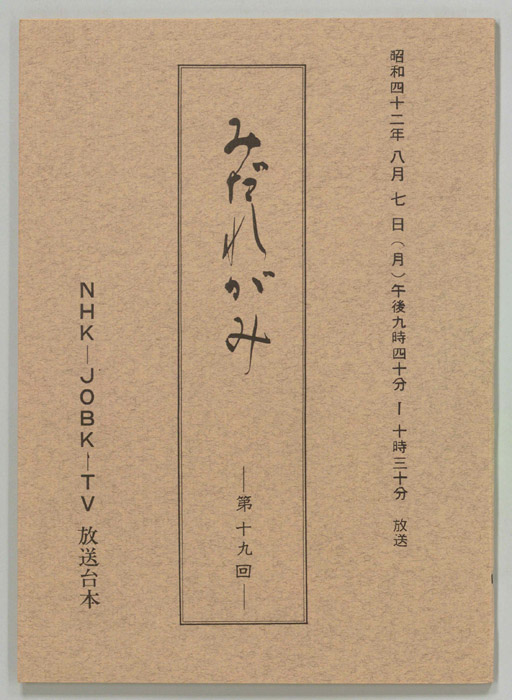 昭和四十二年 八月 七 日（月）午後九時四十分 ー 十時三十分 放送
みだれがみ
―第十九回―
NHK―JOBK―TV 放送台本